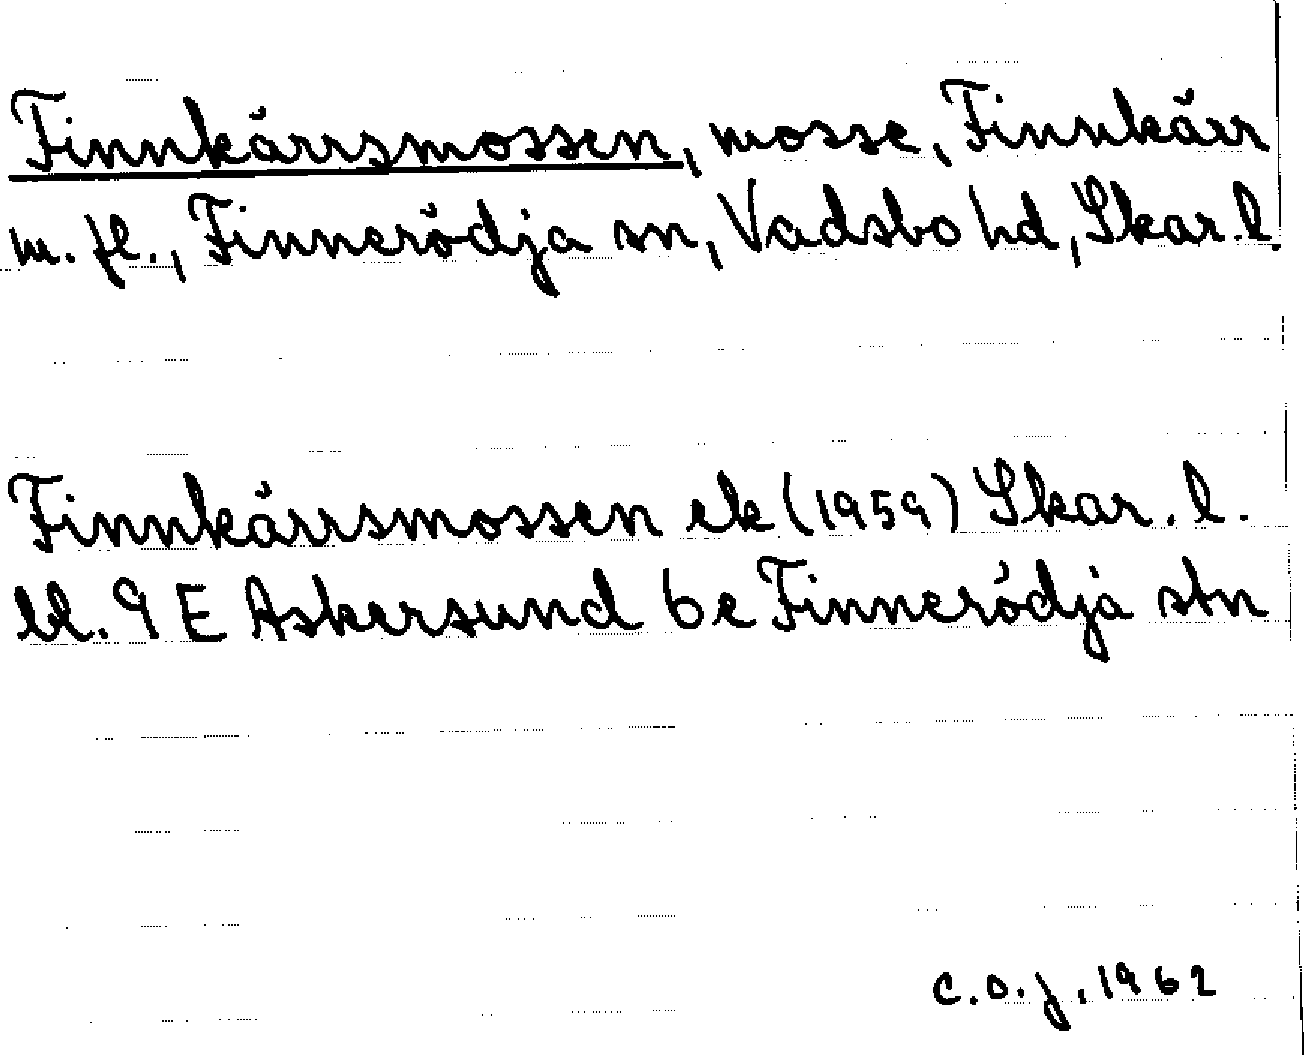 Finnkärrsmossen, mosse, Finnkärr
m. fl., Finnerödja sn, Vadsbo hd, Skar. l.
Finnkärrsmossen ek (1959) Skar. l.
bl. 9 E Askersund 6e Finnerödja stn
C.O.J. 1962